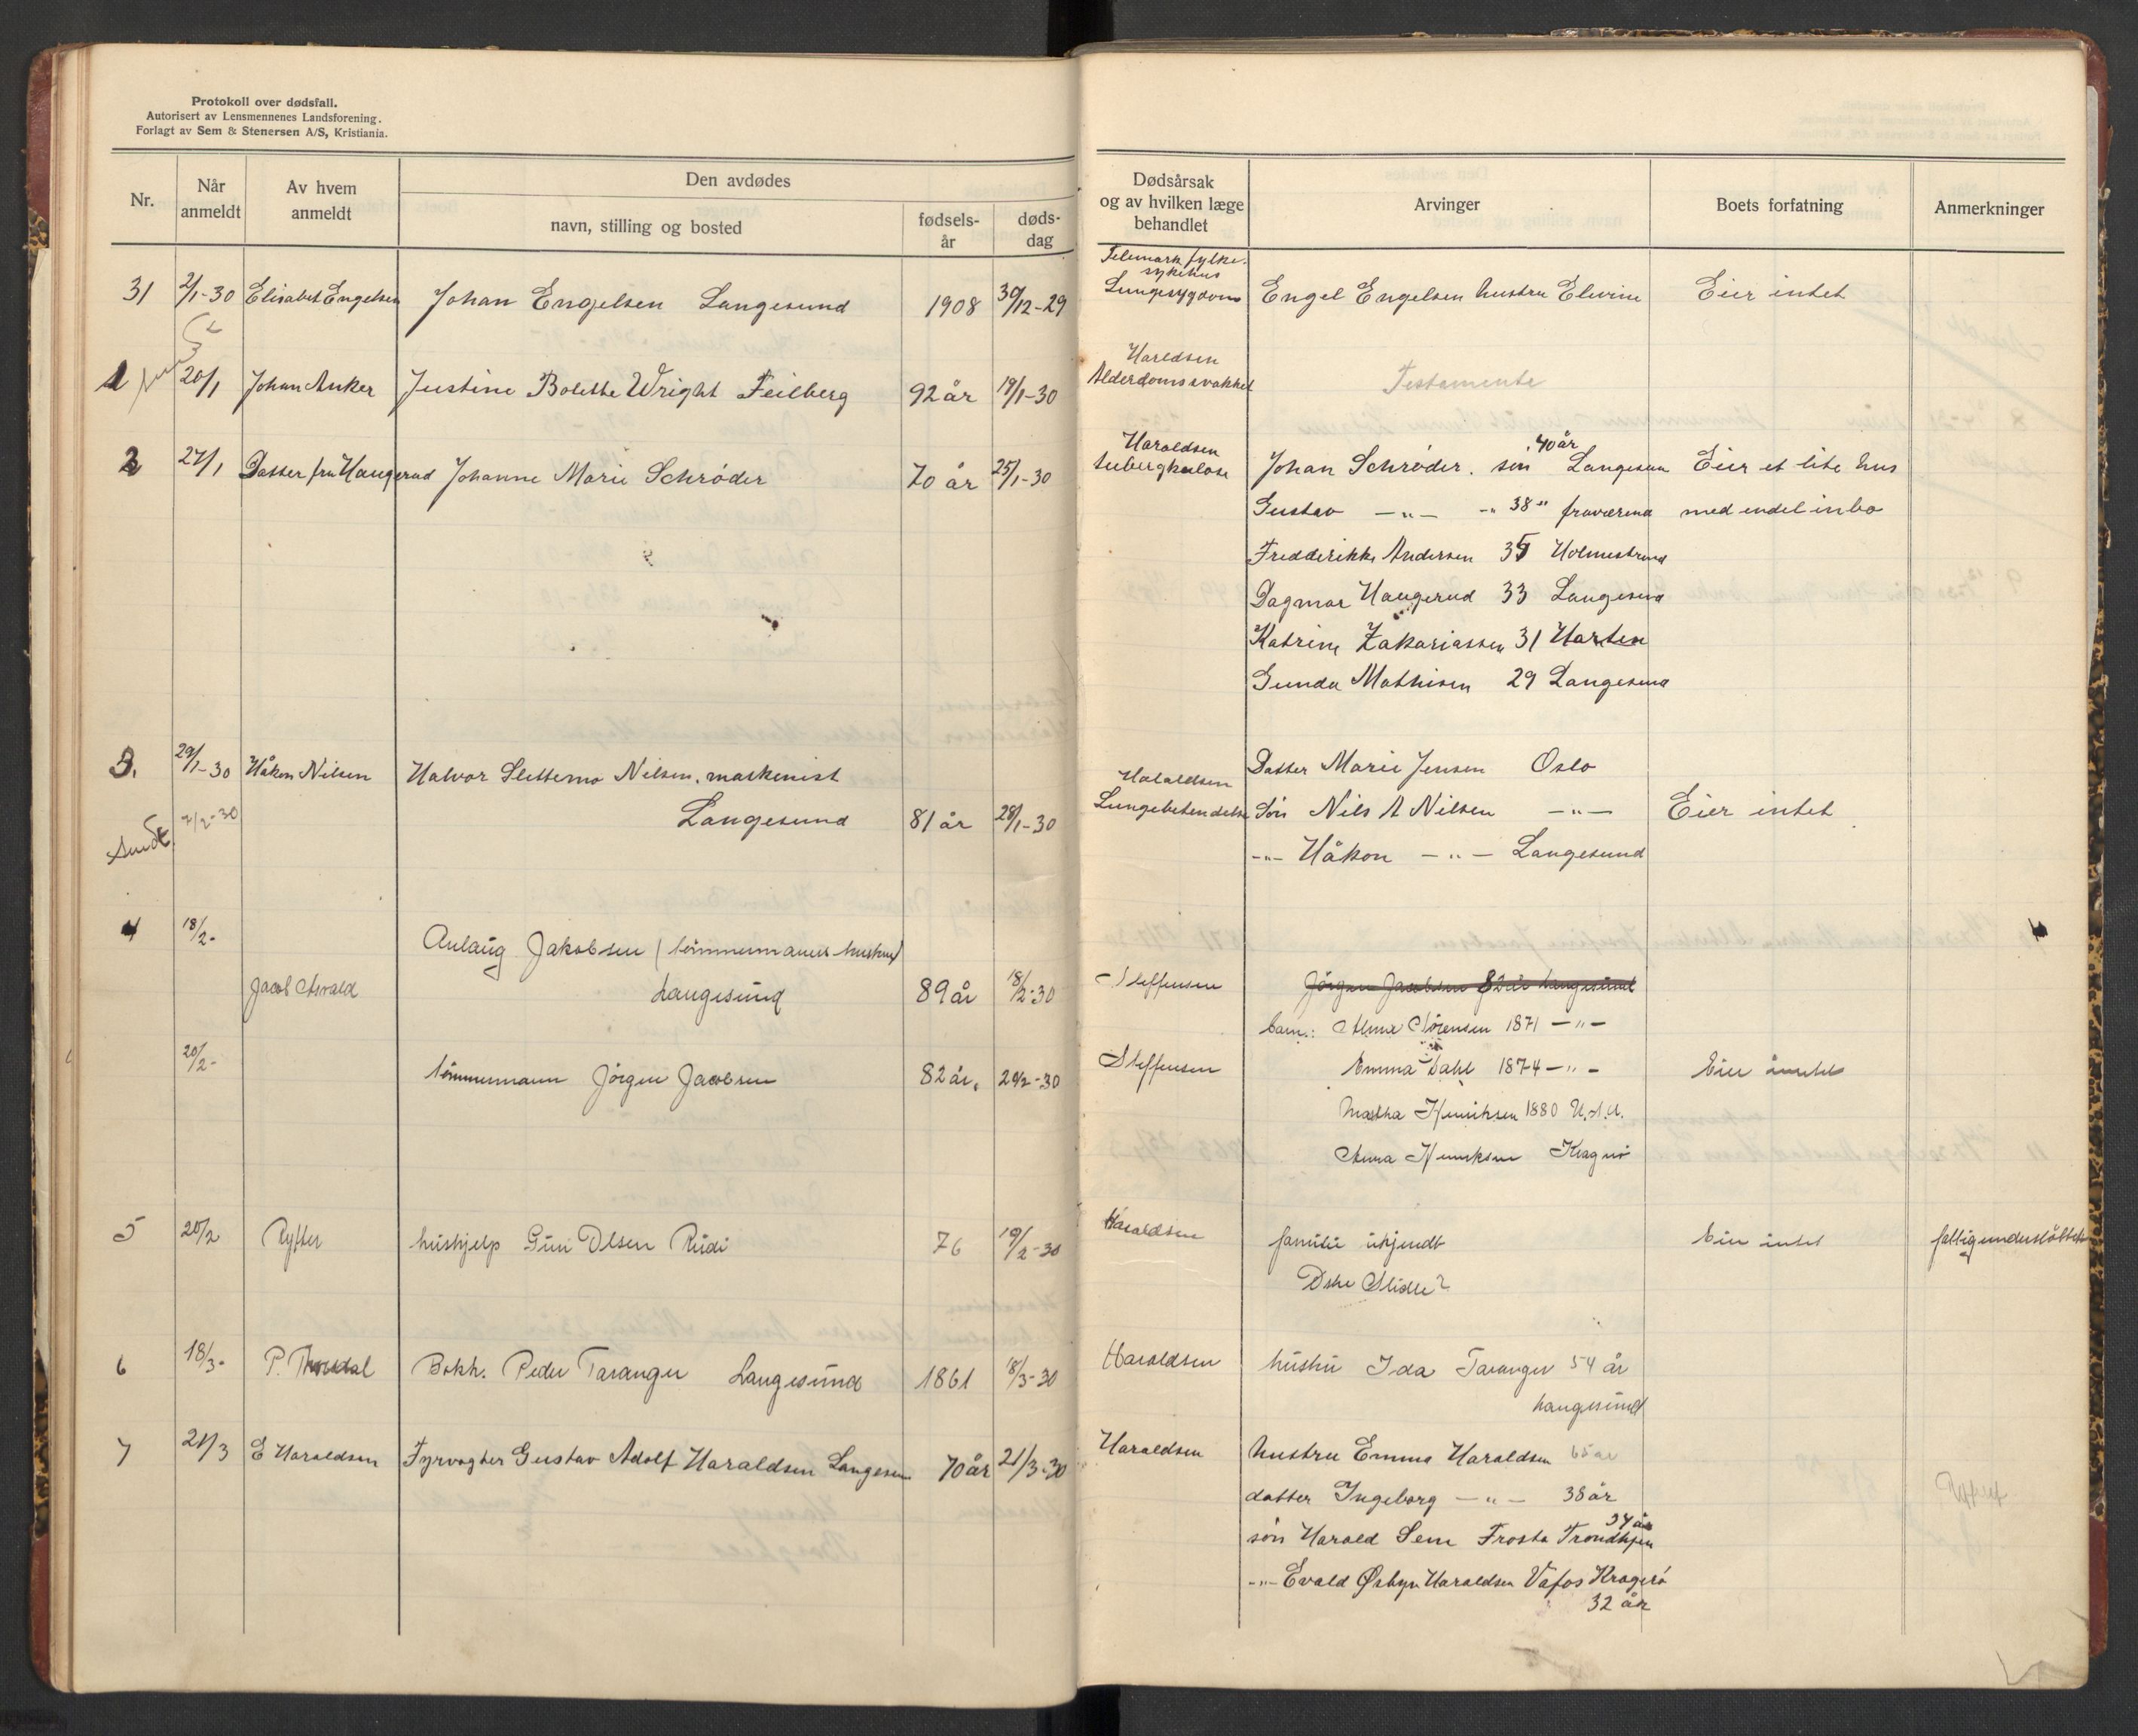 Protokoll over dødsfall.
Autorisert av Lensmennenes Landsforening.
Forlagt av Sem & Stenersen A/S, Kristiania.
Nr.
Når anmeldt
Av hvem anmeldt
Den avdødes
navn, stilling og bosted
fødsels-år
døds-dag
Dødsårsak og av hvilken læge behandlet
Arvinger
Boets forfatning
Anmerkninger
31 2/1-30 Elisabet Engelsen Johan Engelsen Langesund 1908 30/12-29
Telemark fylke. sykehus
Lungesygdom Engel Engelsen hustru Elevine Eier intet
1 20/1 Johan Anker Justine Bolette Wright Feilberg 92 år 19/1-30
Haraldsen
Alderdomssvakhet Testamente
2 27/1 Datter fru Haugerud Johanne Marie Schrøder 70 år 25/1-30
Haraldsen
tuberghulose Johan Schrøder. søn 40 år Langesun Eier et lite hus
Gustav -"- -"- 38 " fraværend med endel inbo
Fredderikke Andersen 35 Holmestrand
Dagmar Haugerud 33 Langesund
Katrine Zakariassen 31 Harten
Gunda Mathisen 29 Langesund
3. 29/1-30 Håkon Nilsen Halvor Slettemo Nilsen, maskenist
Langesund 81 år 28/1-30
7/2-30
Sendt
Datter Marie Jensen Oslo
Haraldsen
Lungebetendelse Søn Nils A Nilsen -"- Eier intet
-"- Håkon -"- Langesund
4 18/2- Aslaug Jakobsen (tømmermanns hustru)
Jacob Asvald Langesund 89 år 18/2-30
Steffensen Jörgen Jacobsen 82 år Langesund
barn: Alma Sørensen 1871 -"-
20/2- tömmermann Jörgen Jacobsen 82 år. 20/2-30
Steffensen Emma Dahl 1874 -"- Eier intet
Martha Henriksen 1880 U.S.A.
Anna Henriksen Kragerö
5 20/2 Ryfter hushjelp Guri Olsen Rudi 76 19/2-30
Haraldsen familie ukjendt Eier intet fattigunderstöttet
6 18/3- P. Bokh. Peder Taranger Langesund 1861 18/3-30
Haraldsen hustru Ida Taranger 54 år
Langesund
7 21/3 E Haraldsen Fyrvogter Gustav Adolf Haraldsen Langesun 70 år 21/3-30
Haraldsen hustru Emma Haraldsen 65 år
datter Ingeborg -"- 38 år
søn Harald Sem Frosta Trondhjem 34 år
-"- Evald Østbye Haraldsen Vafos Kragerø
32 år